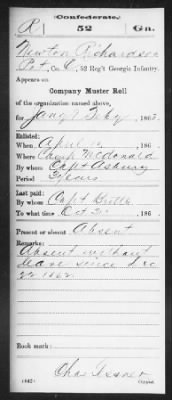 (Confederate.)
R 52 Ga.
Newton Richardson
Pvt, Co. C, 52 Reg't Georgia Infantry.
Appears on
Company Muster Roll
of the organization named above,
for Jany & Feby, 1863.
Enlisted:
When April 186
Where Camp McDonald
By whom Capt Asbury
Period 3 years
Last paid:
By whom Capt
To what time Oct 31 186
Present or absent Absent
Remarks:
Absent without
leave since Dec
1862
Book mark:
(642) Copyist.